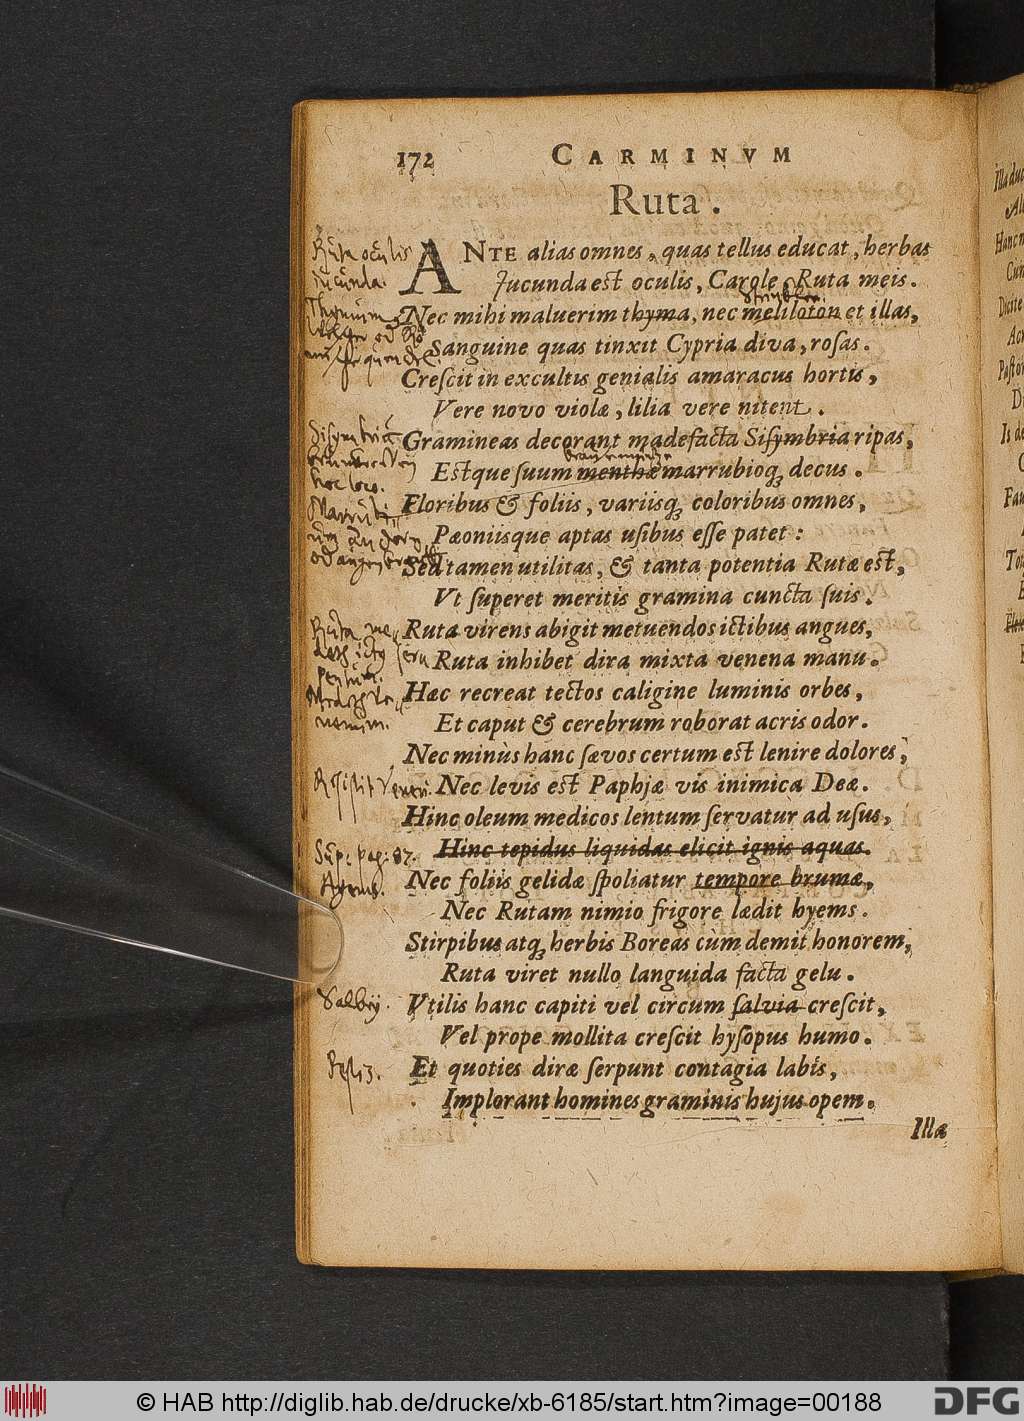 172 CARMINVM
Ruta.
Ruta oculis
iucunda.
ANTE alias omnes, quas tellus educat, herbas
Jucunda est oculis, Carole, Ruta meis.
Nec mihi maluerim thyma, nec meliloton et illas,
Sanguine quas tinxit Cypria diva, rosas.
Creſcit in excultis genialis amaracus hortis,
Vere novo violæ, lilia vere nitent.
Gramineas decorant madefacta Siſymbria ripas,
Estque ſuum menthæ marrubioq; decus.
hoc loco.
Floribus & foliis, variisq; coloribus omnes,
Pæoniisque aptas uſibus eſſe patet:
Sed tamen utilitas, & tanta potentia Rutæ est,
Vt ſuperet meritis gramina cuncta ſuis.
Ruta virens abigit metuendos ictibus angues,
Ruta inhibet dira mixta venena manu.
Hæc recreat tectos caligine luminis orbes,
Et caput & cerebrum roborat acris odor.
Nec minùs hanc ſævos certum est lenire dolores,
Resistit Veneri.
Nec levis est Paphjæ vis inimica Deæ.
Hinc oleum medicos lentum ſervatur ad uſus,
Sup: pag: 87.
Hinc tepidus liquidas elicit ignis aquas.
Nec foliis gelidæ ſpoliatur tempore brumæ,
Nec Rutam nimio frigore lædit hyems.
Stirpibus atq; herbis Boreas cùm demit honorem,
Ruta viret nullo languida facta gelu.
Salbey.
Vtilis hanc capiti vel circum ſalvia creſcit,
Vel prope mollita creſcit hyſopus humo.
Et quoties diræ ſerpunt contagia labis,
Implorant homines graminis hujus opem.
Illa
© HAB http://diglib.hab.de/drucke/xb-6185/start.htm?image=00188
DFG